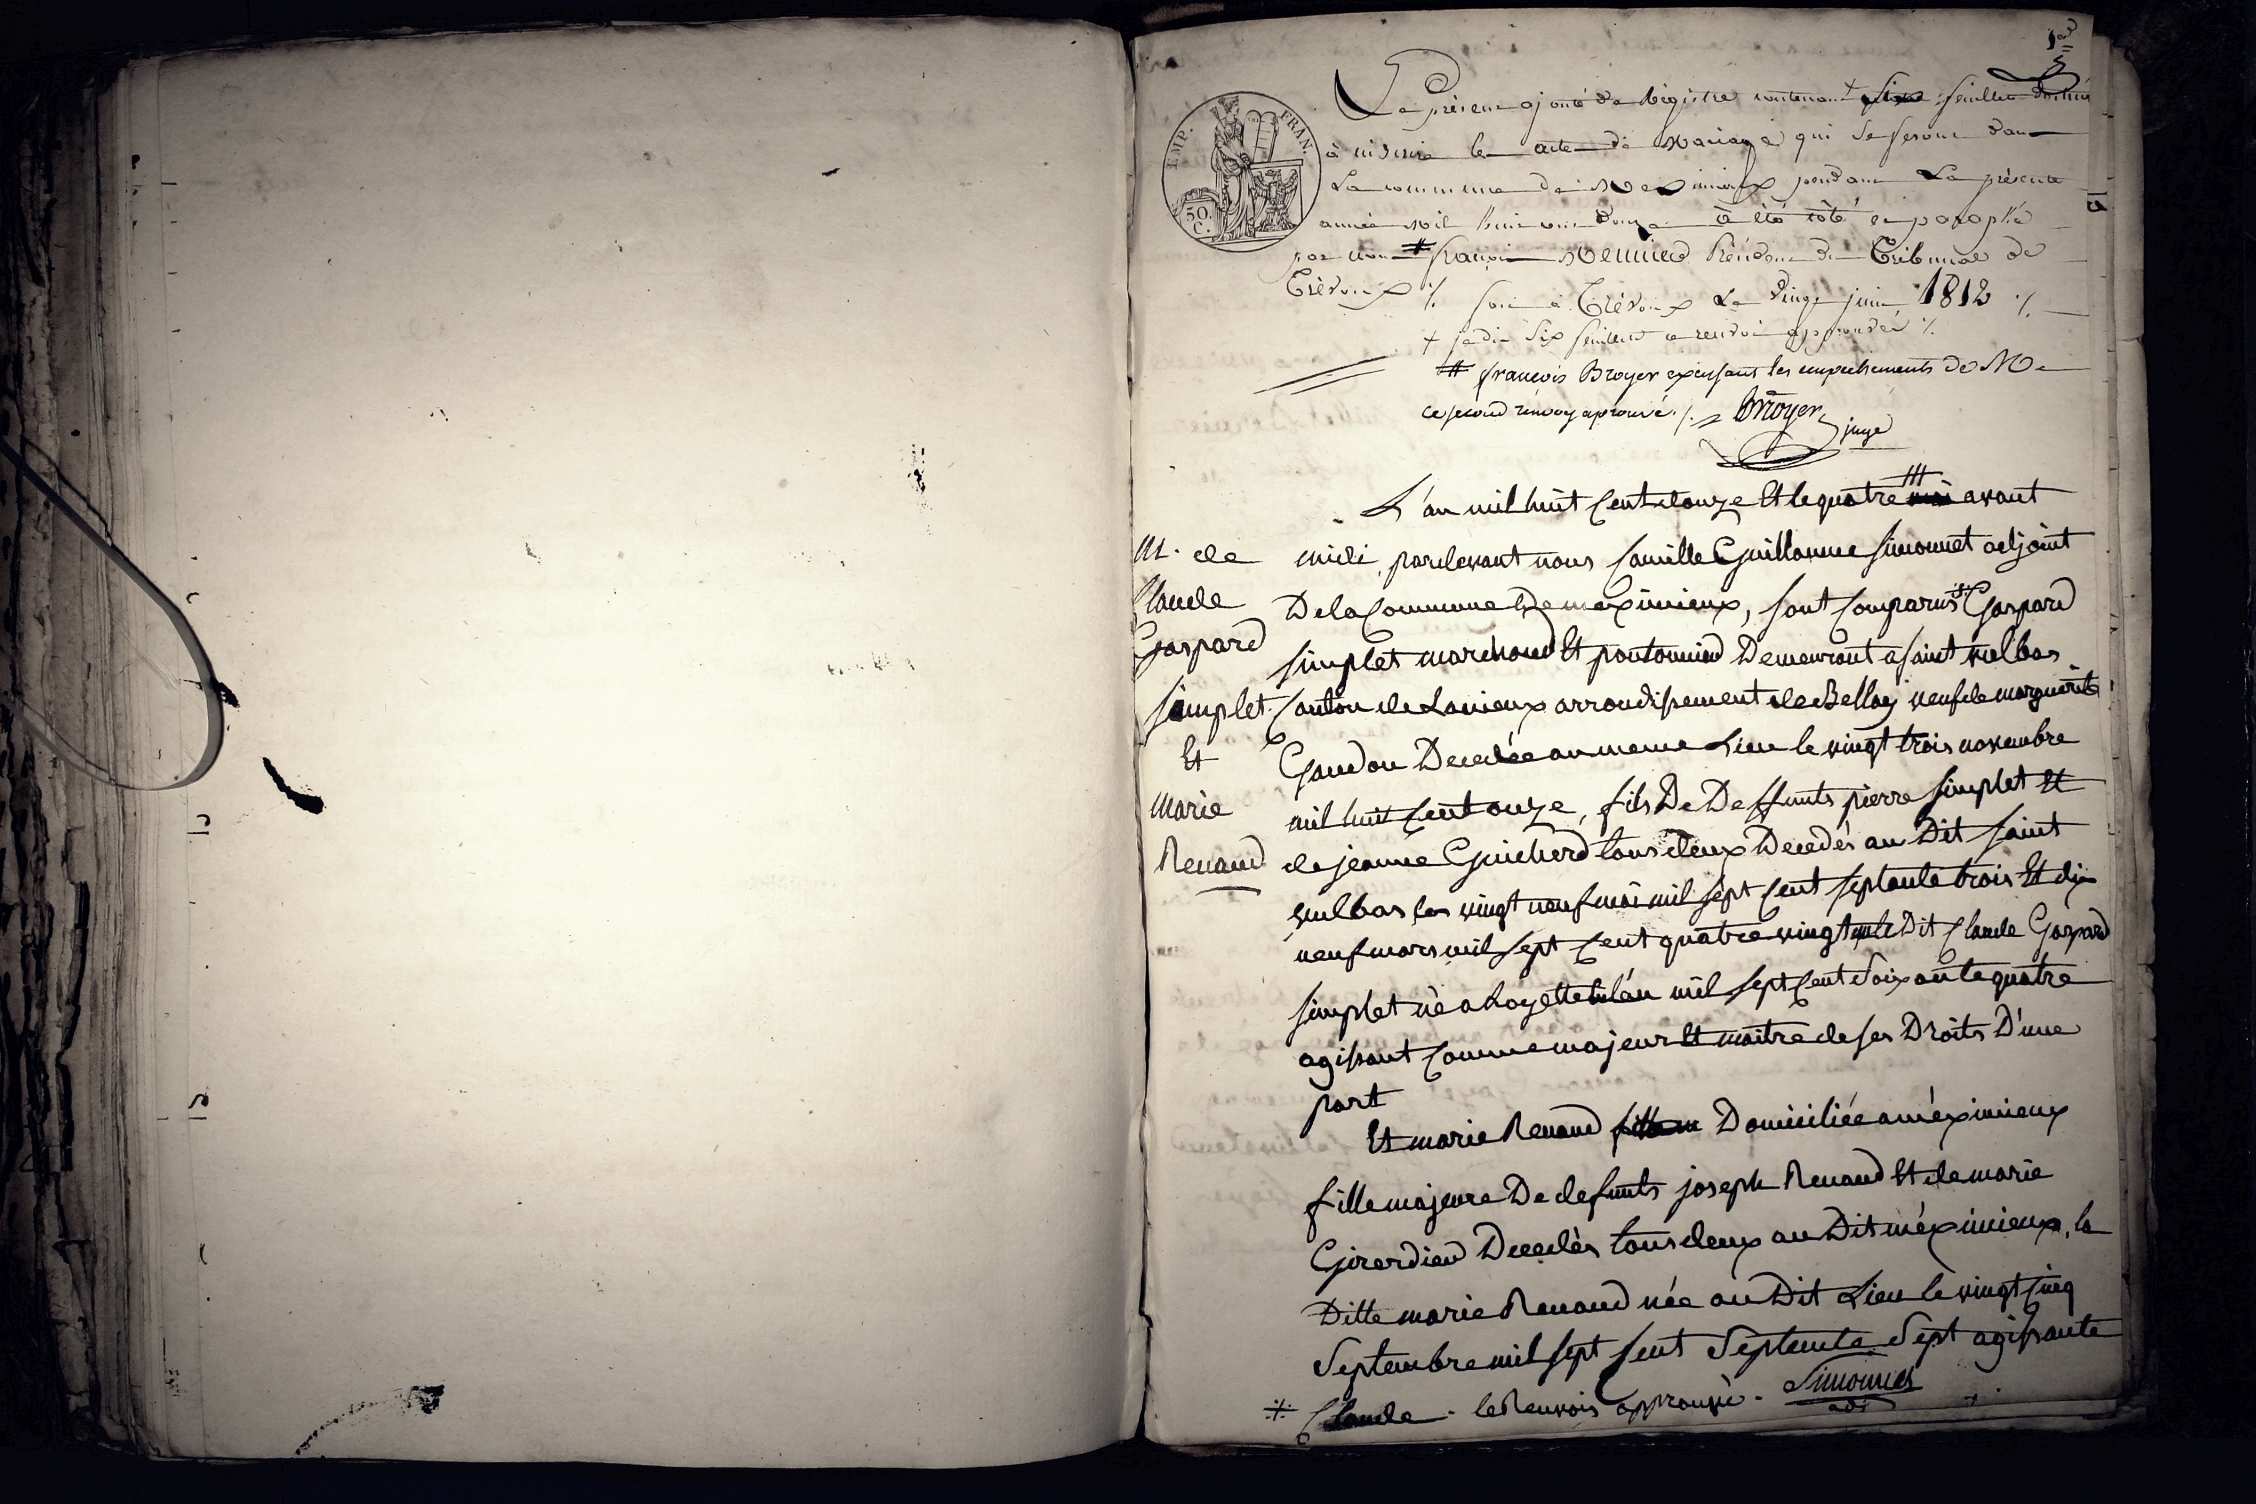 1er
Le présent ajouté de Registre contenant + feuillets destiné
à inscrire les actes de Mariage qui se feront dans
La commune de Meximieux pendant La présente
année mil huit cent douze a été coté et paraphé
par nous # françois Président du Tribunal de
Trévoux ./. fait à Trévoux Le Vingt juin 1812 ./.
+ je dis six feuillets ce renvoi approuvé ./.
# françois Broyer exerçant les empechements de M.
ce second renvoy aprouvé ./. Broyer
juge
IMP. FRAN.
50.
C.
L'an mil huit Cent douze Et le quatre avant
midi, pardevant nous Camille Guillaume Simonnet adjoint
De la Commune De meximieux, sont Comparus Gaspard
simplet marchand Et pontonnier Demeurant a saint vulbas
Canton de Lanieux arrondissement de Belley veuf de marguerite
Gandon Decedée au meme Lieu le vingt trois novembre
mil huit Cent onze, fils De Deffunts pierre simplet Et
de jeanne Guicherd tous deux Decedés au Dit saint
vulbas les vingt neuf mai mil sept Cent septante trois Et dix
neuf mars mil sept Cent quatre vingt le Dit Claude Gaspard
simplet né a Loyette l'an mil sept Cent soixante quatre
agissant Comme majeur Et maitre de ses Droits D'une
part
Et marie Renaud Domiciliée a méximieux
fille majeure De defunts joseph Renaud Et de marie
Girerdier Decedés tous deux au Dit méximieux, la
Ditte marie Renaud née au Dit Lieu le vingt Cinq
Septembre mil sept Cent Septente Sept agissante
Claude. le Renvois approuvé. Simonnet
adj
M. de
Claude
Gaspard
simplet
Et
Marie
Renaud